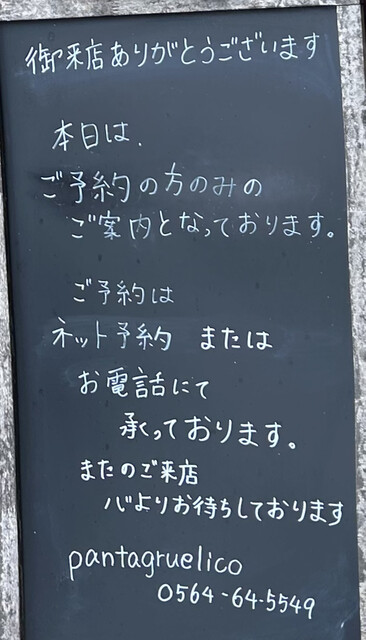 御来店ありがとうございます
本日は、
ご予約の方のみの
ご案内となっております。
ご予約は
ネット予約 または
お電話にて
承っております。
またのご来店
心よりお待ちしております
pantagruelico
0564-64-5549